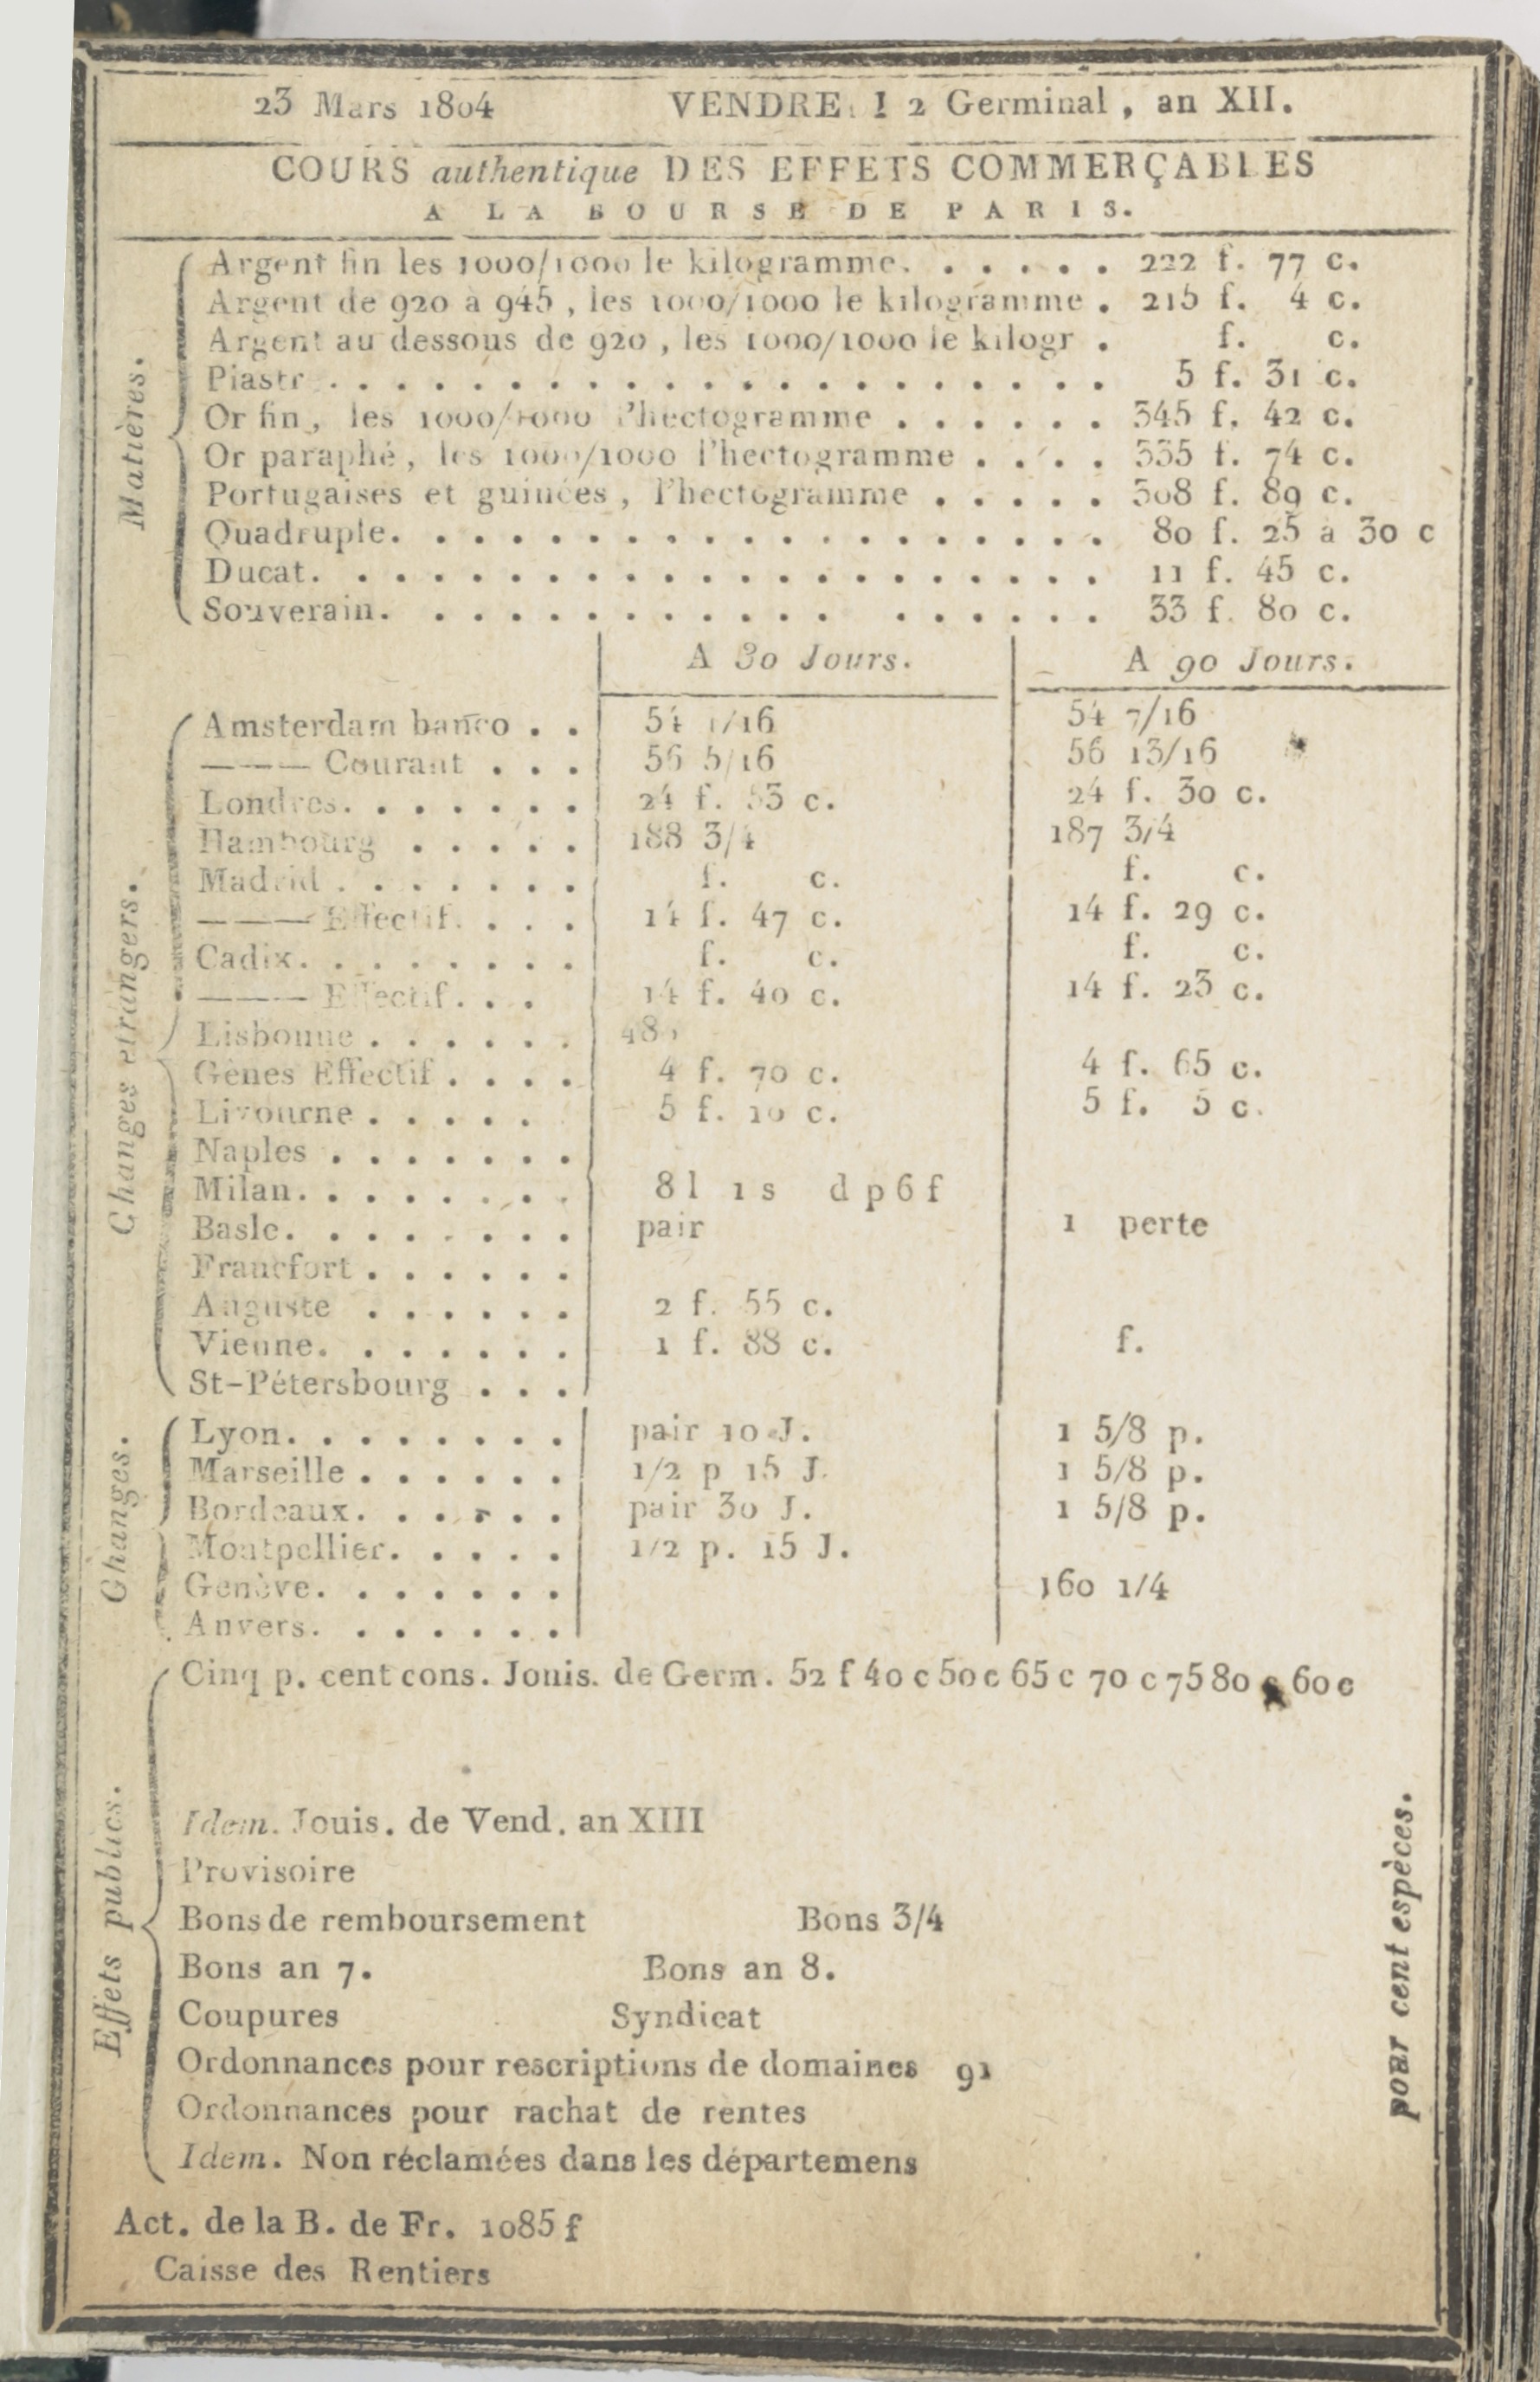 23 Mars 1804 VENDRE I 2 Germinal, an XII.
COURS authentique DES EFFETS COMMERÇABLES
A LA BOURSE DE PARIS.
Matières.
Argent fin les 1000/1000 le kilogramme. . . . . . 222 f. 77 c.
Argent de 920 à 945, les 1000/1000 le kilogramme . 215 f. 4 c.
Argent au dessous de 920, les 1000/1000 le kilogr . f. c.
Piastr . . . . . . . . . . . . . . . . . . . . 5 f. 31 c.
Or fin, les 1000/1000 l'hectogramme . . . . . . 345 f. 42 c.
Or paraphé, les 1000/1000 l'hectogramme . . . . 335 f. 74 c.
Portugaises et guinées, l'hectogramme . . . . . 308 f. 89 c.
Quadruple. . . . . . . . . . . . . . . . . . . 80 f. 25 a 30 c
Ducat. . . . . . . . . . . . . . . . . . . . . 11 f. 45 c.
Souverain. . . . . . . . . . . . . . . . . . . 33 f. 80 c.
A 30 Jours. A 90 Jours.
Changes etrangers.
Amsterdam banco . . 54 1/16 54 7/16
——— Courant . . . 56 5/16 56 13/16
Londres. . . . . . . 24 f. 53 c. 24 f. 30 c.
Hambourg . . . . . 188 3/4 187 3/4
Madrid . . . . . . . f. c. f. c.
——— Effectif. . . . 14 f. 47 c. 14 f. 29 c.
Cadix. . . . . . . . f. c. f. c.
——— Effectif. . . 14 f. 40 c. 14 f. 23 c.
Lisbonne . . . . . .
Gènes Effectif . . . . 4 f. 70 c. 4 f. 65 c.
Livourne . . . . . 5 f. 10 c. 5 f. 5 c.
Naples . . . . . . .
Milan. . . . . . . . 8 l 1 s d p 6 f
Basle. . . . . . . . pair 1 perte
Francfort . . . . . .
Auguste . . . . . . 2 f. 55 c.
Vienne. . . . . . . 1 f. 88 c. f.
St-Pétersbourg . . .
Changes.
Lyon. . . . . . . . pair 10 J. 1 5/8 p.
Marseille . . . . . . 1/2 p 15 J. 1 5/8 p.
Bordeaux. . . . . . pair 30 J. 1 5/8 p.
Montpellier. . . . . 1/2 p. 15 J.
Genève. . . . . . . 160 1/4
Anvers. . . . . . .
Effets publics.
Cinq p. cent cons. Jouis. de Germ. 52 f 40 c 50 c 65 c 70 c 75 80 c 60 c
Idem. Jouis. de Vend. an XIII
Provisoire
Bons de remboursement Bons 3/4
Bons an 7. Bons an 8.
Coupures Syndicat
Ordonnances pour rescriptions de domaines 91
Ordonnances pour rachat de rentes
Idem. Non réclamées dans les départemens
pour cent espèces.
Act. de la B. de Fr. 1085 f
Caisse des Rentiers